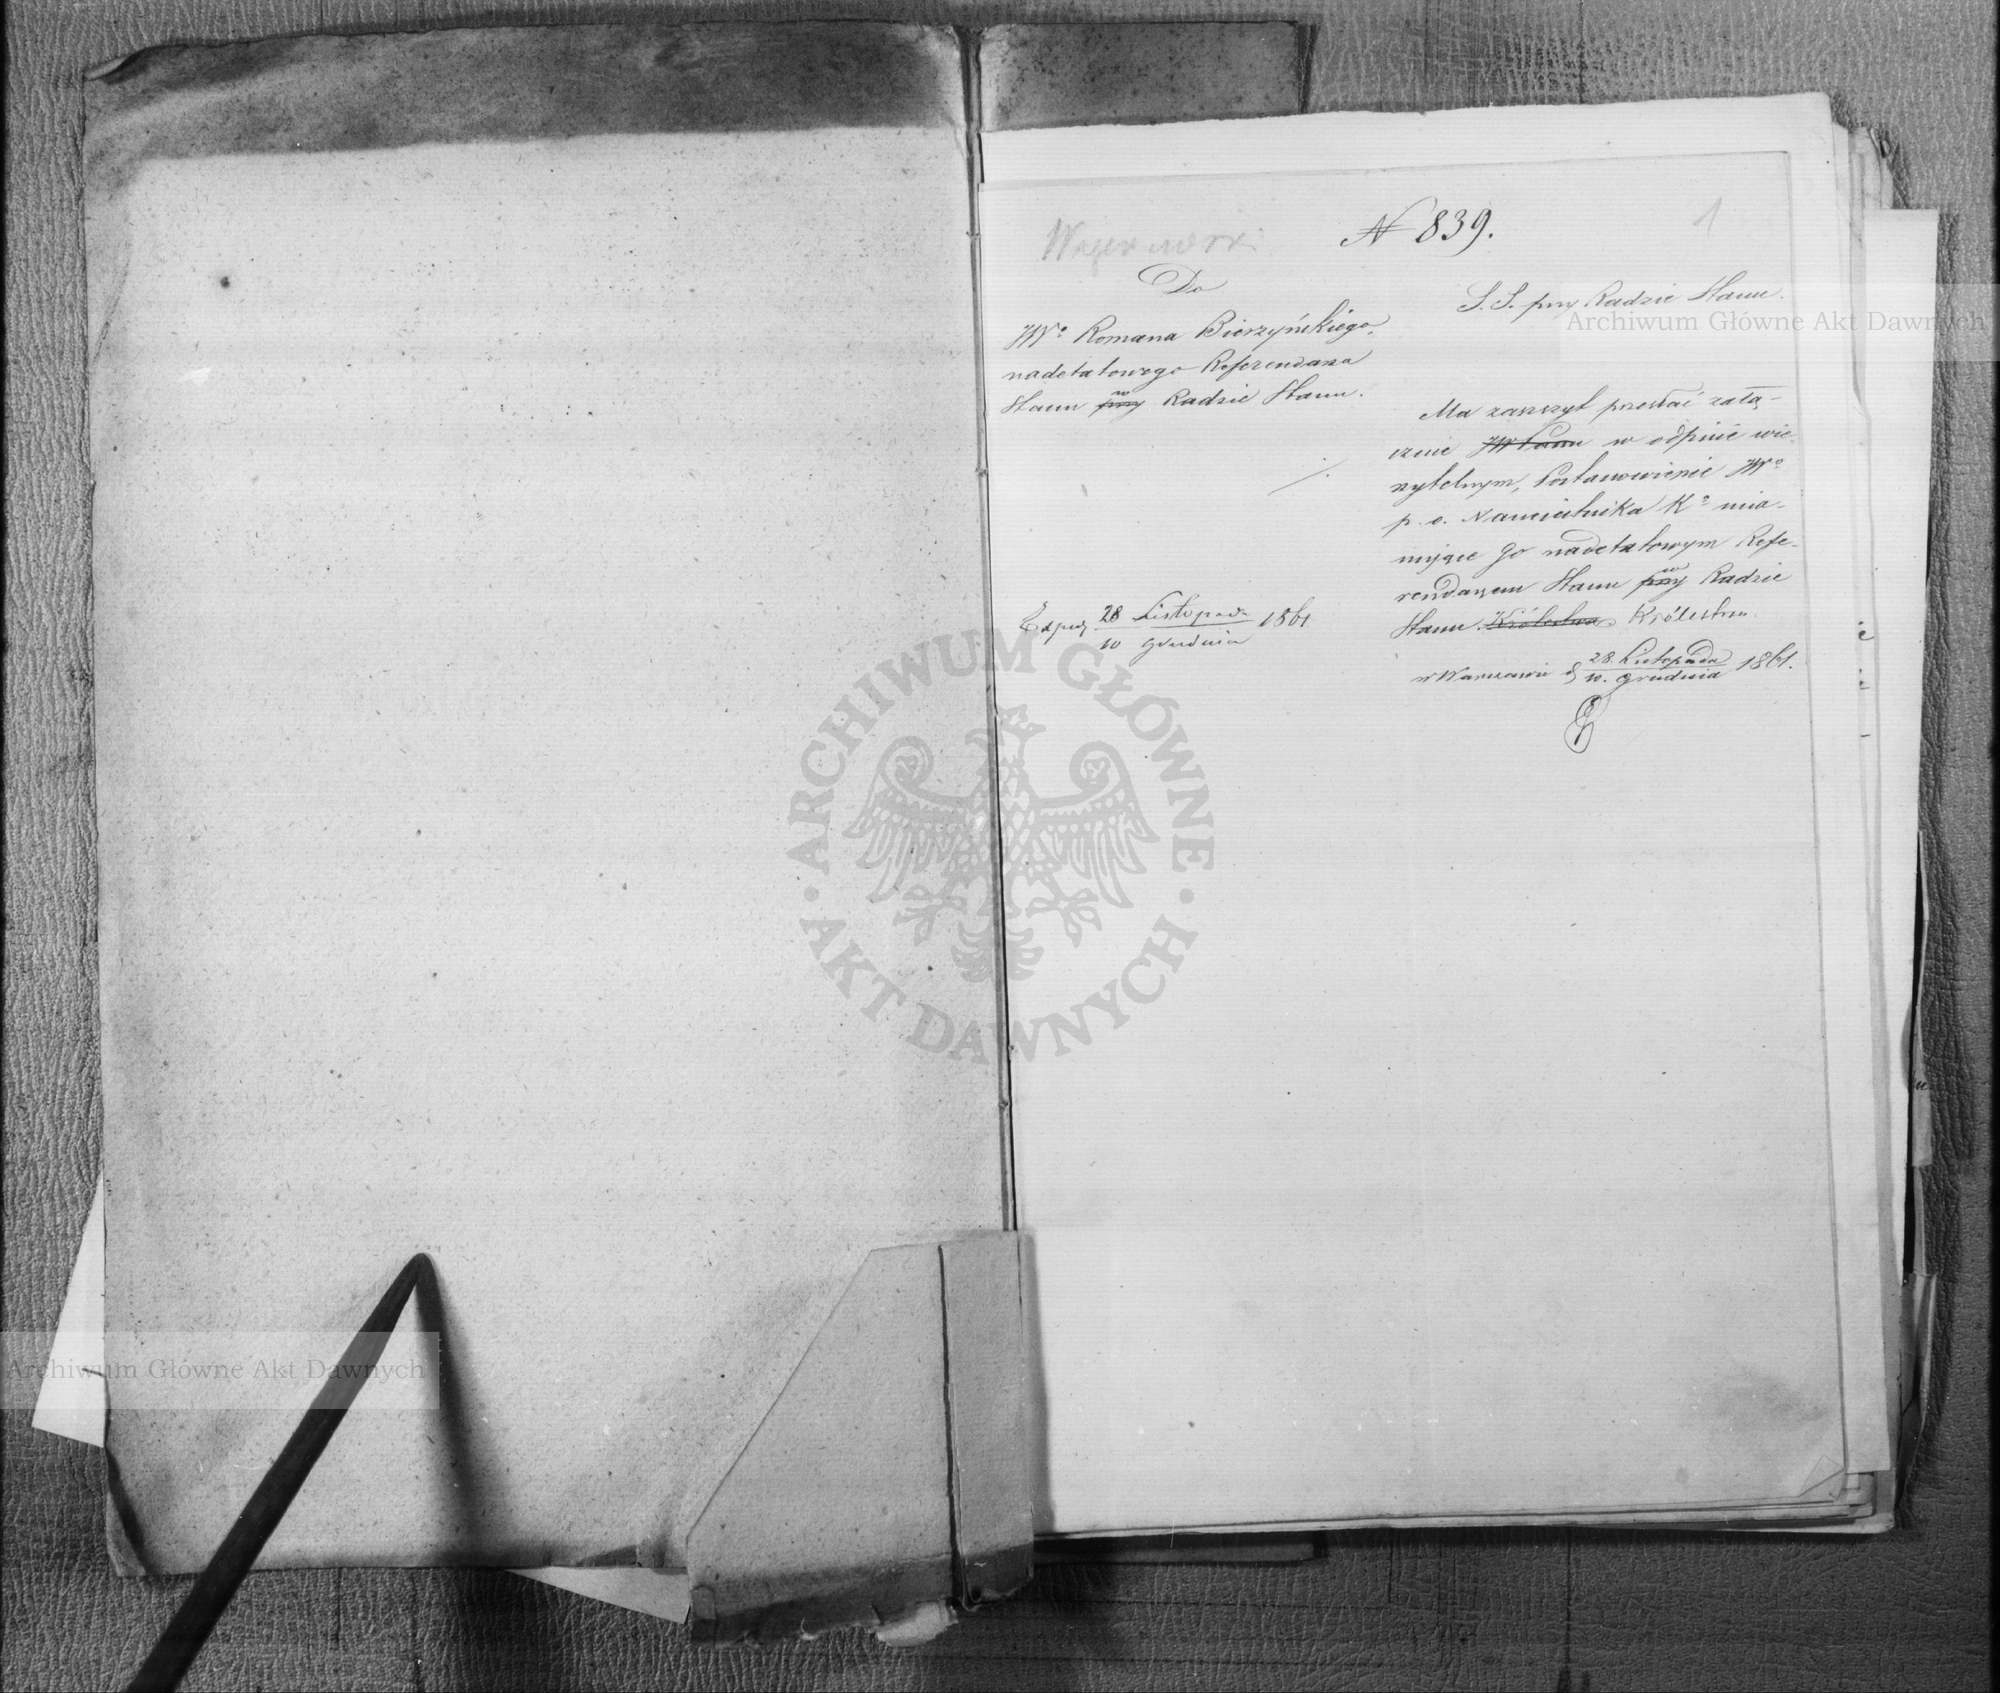 1
N 839.
Do
JWo Romana Bierzyńskiego,
nadetatowego Referendarza
Stanu przy w Radzie Stanu.
Exped 28 Listopada / 10 Grudnia 1861
S. S. przy Radzie Stanu.
Ma zaszczyt przesłać załą-
cznie JW Panu w odpisie wie-
rzytelnym, Postanowienie JWo
p. o. Namiestnika Ko mia-
nujące go nadetatowym Refe-
rendarzem Stanu przy w Radzie
Stanu. Królestwa Królestwa
w Warszawie d 28. Listopada / 10. Grudnia 1861.
Archiwum Główne Akt Dawnych
ARCHIWUM GŁÓWNE
AKT DAWNYCH
Archiwum Główne Akt Dawnych